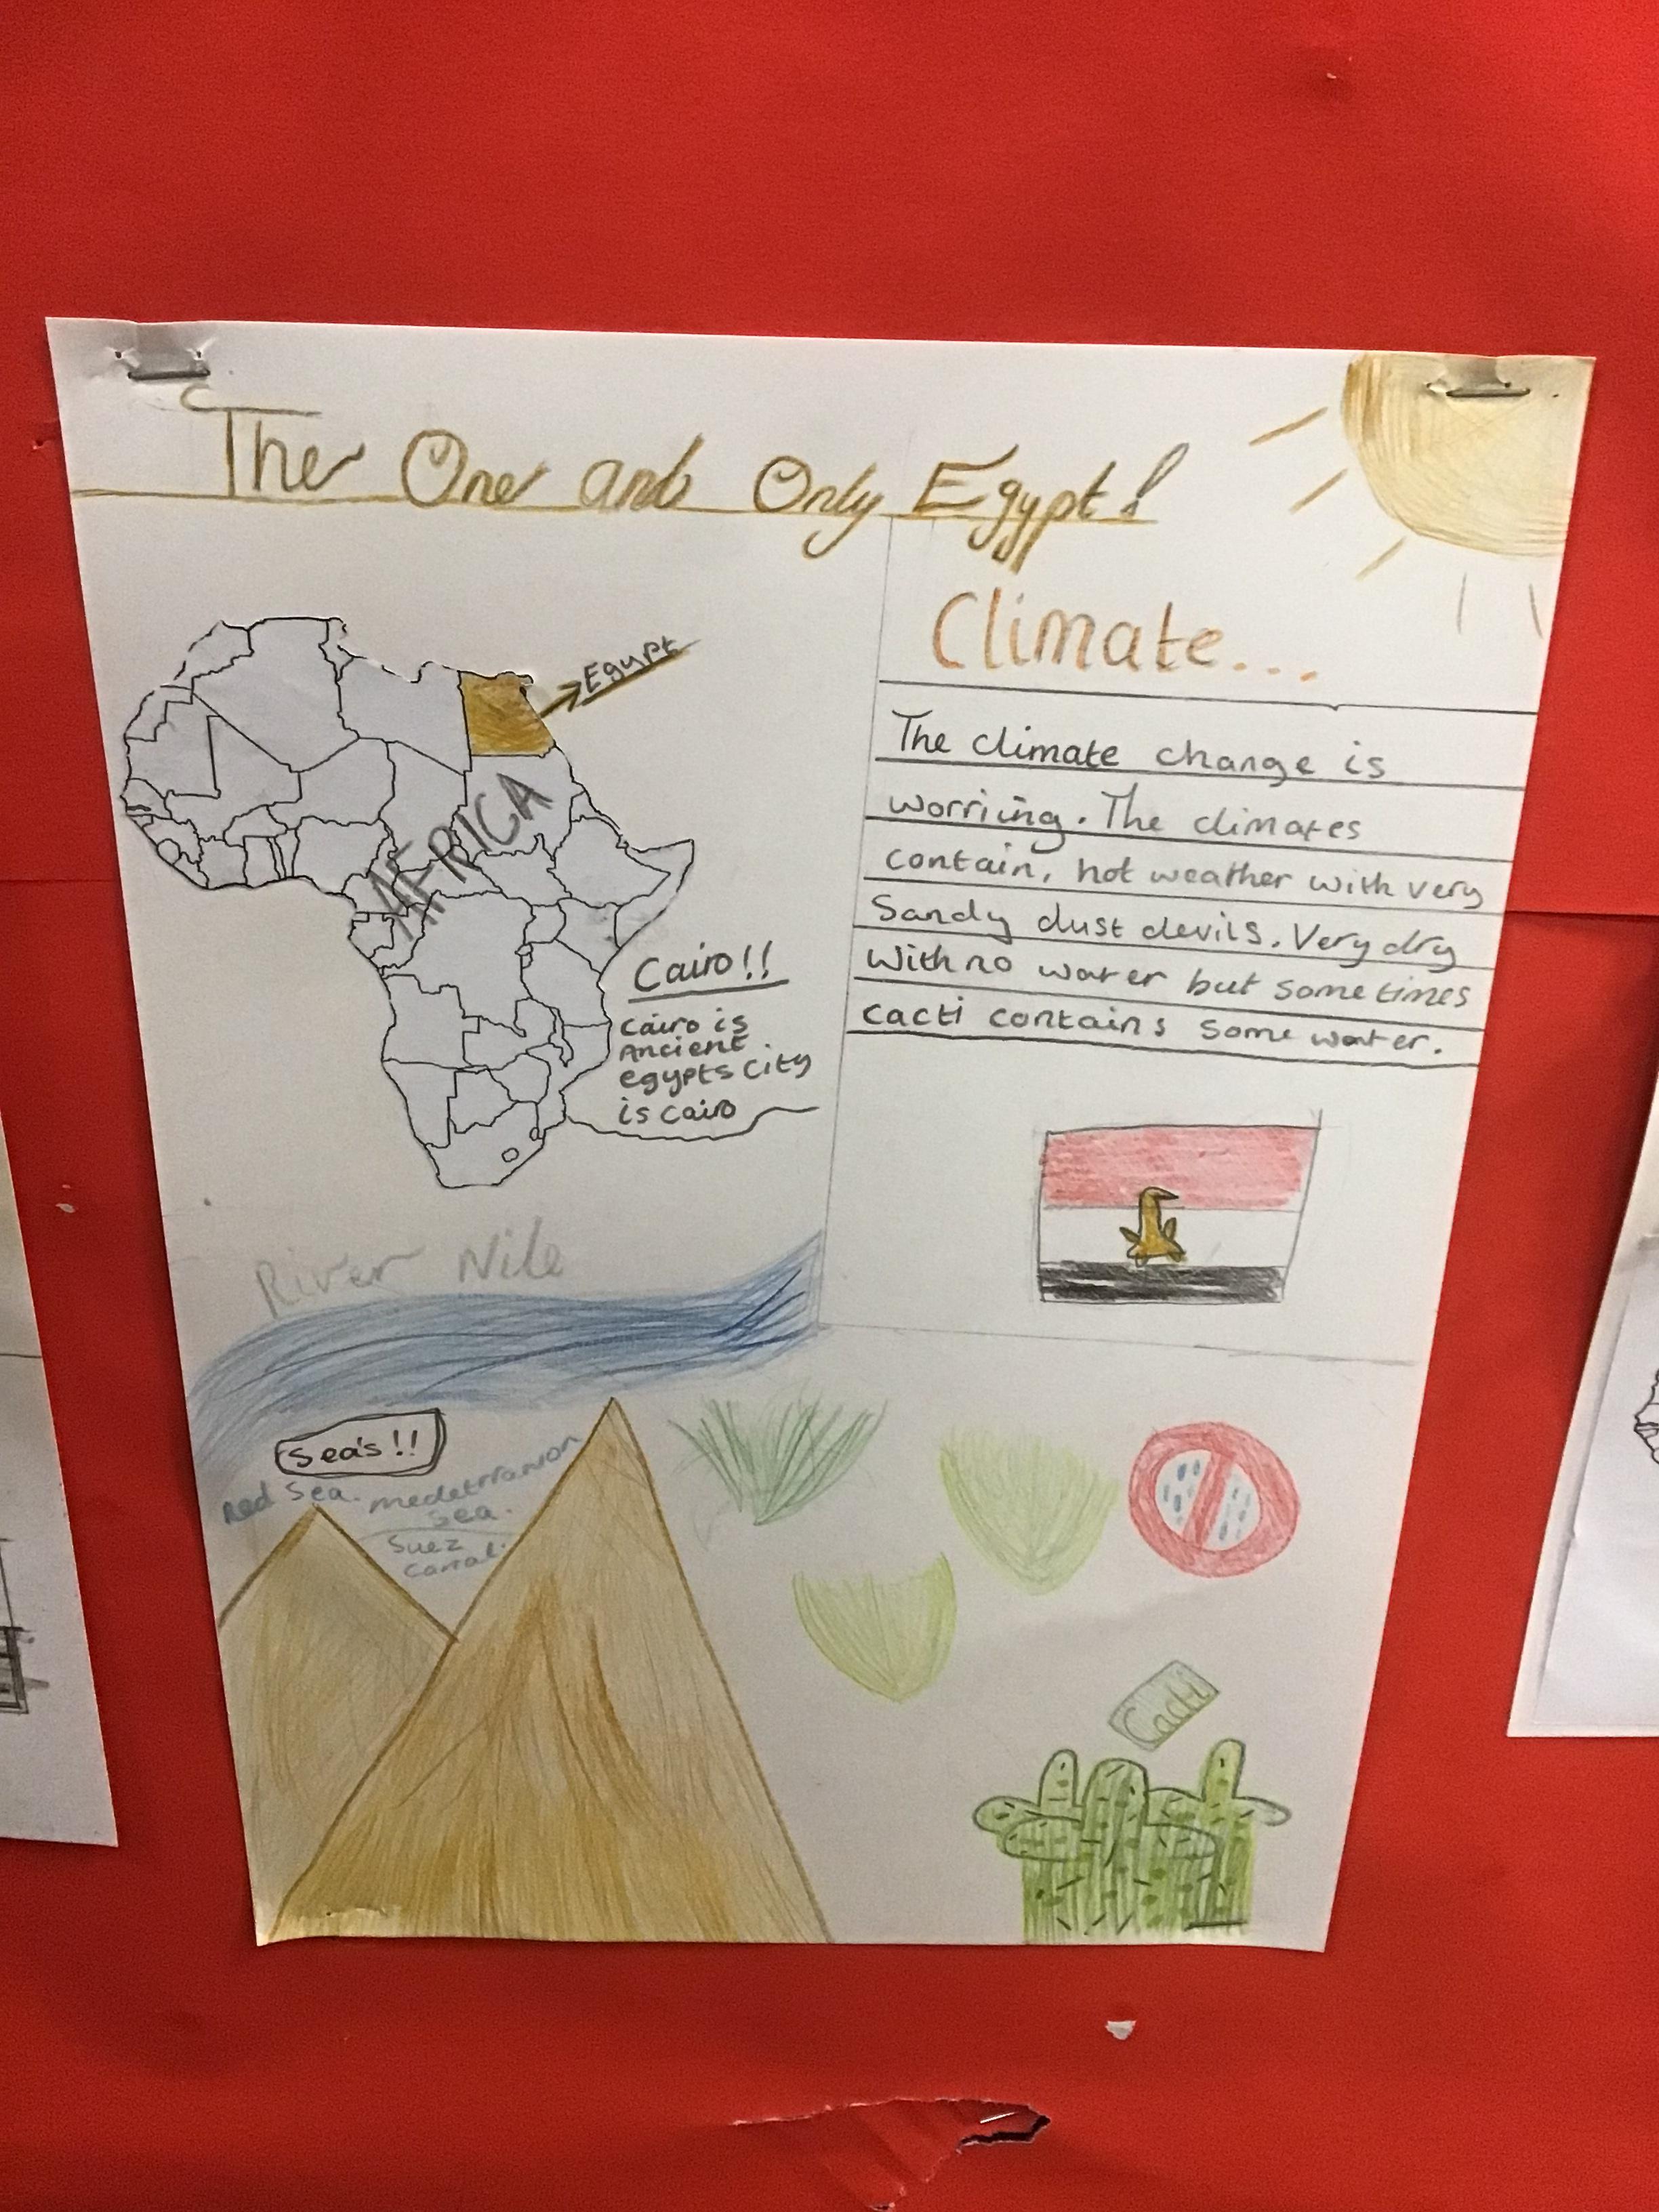 The One and Only Egypt!
Egypt
AFRICA
Cairo!!
Cairo is
Ancient
egypts City
is Cairo
Climate...
The climate change is
worriing. The climates
contain, hot weather with very
Sandy dust devils. Very dry
With no water but sometimes
cacti contains some water.
River Nile
Sea's!!
Red Sea.
medeterranion
Sea.
Suez
Canal.
Cacti